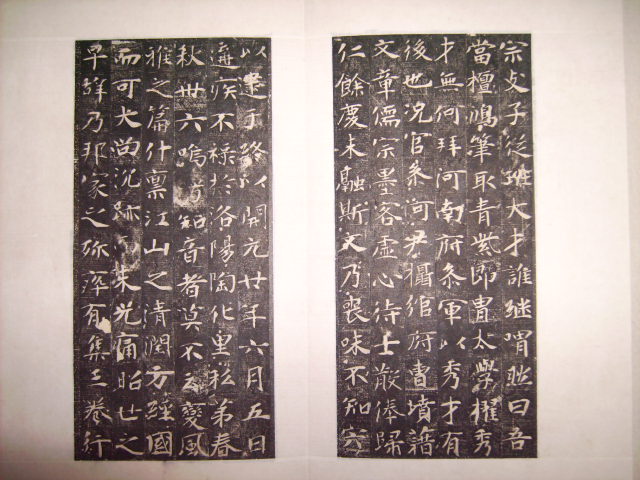 宗攴子從孫大才誰继喟然曰吾
當擅鴻筆取青紫即貴太學擢秀
才無何拜河南府叅軍以秀才有
後也況官叅河尹攝綰府曹墳籍
文章儒宗墨客虛心待士散俸歸
仁餘慶未融斯文乃喪味不知
以逮于終以開元廿年六月五日
遘疾不禄於洛陽陶化里私弟春
秋卌六嗚 知音者莫不 變風
雅之篇什禀江山之清潤方經國
而可大 沉跡 光痛昭世之
早辞乃邦家之殄瘁有集三卷行